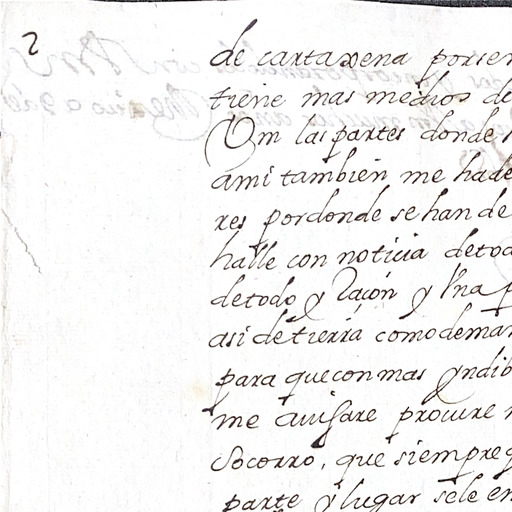 2
de cartaxena porser
tiene mas medios de
Vm las partes donde
ami tambien me hade
res pordonde se han de
halle con noticia detod
detodo y Racon y Vna p
asi detierra comodemar
para queconmas yndib
me auisare procure
Socorro, que siempre q
parte y lugar sele en